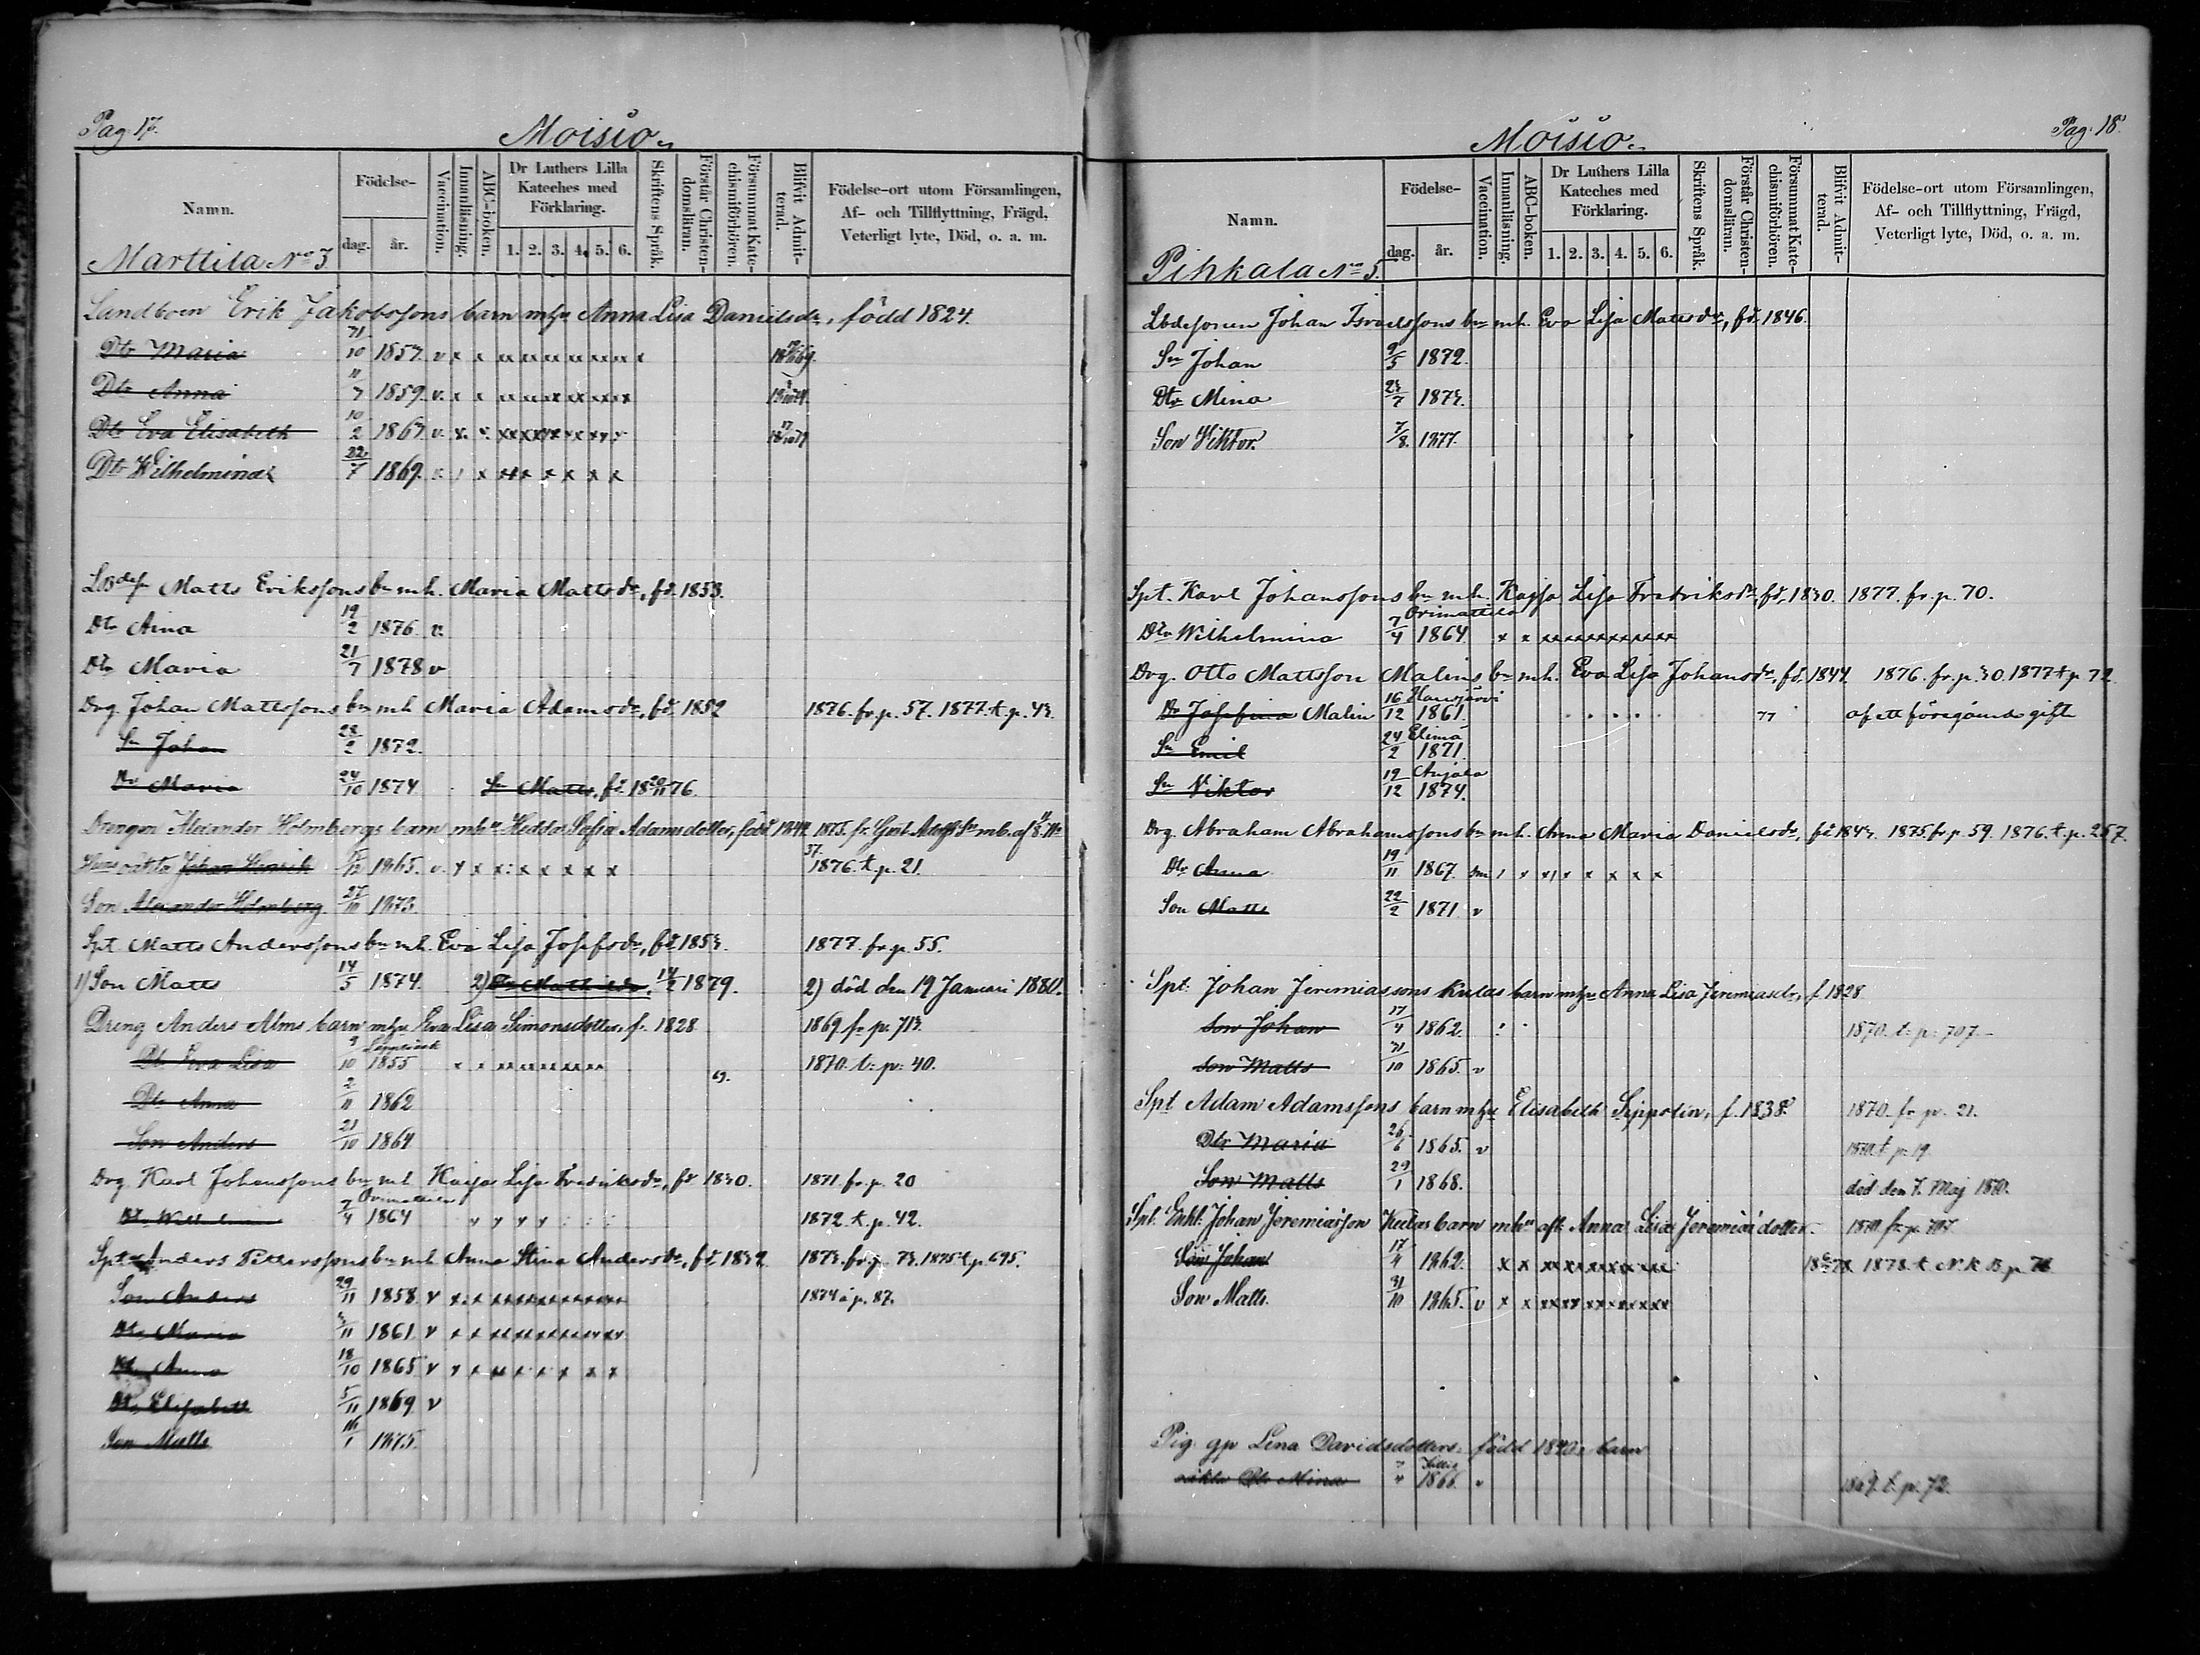 Pag. 17.
Moisio.
Namn.
Födelse-
dag.
år.
Vaccination.
Innanläsning.
ABC-boken.
Dr Luthers Lilla
Kateches med
Förklaring.
1. 2. 3. 4. 5. 6.
Skriftens Språk.
Förstår Christen-
domsläran.
Försummat Kate-
chismiförhören.
Blifvit Admit-
terad.
Födelse-ort utom Församlingen,
Af- och Tillflyttning, Frägd,
Veterligt lyte, Död, o. a. m.
Marttila No 3
Landboen Erik Jakobssons barn mhu Anna Lisa Danielsdr, född 1824.
Dtr Maria 31/10 1857. v x x
Dtr Anna 11/7 1859. v. x x
Dtr Eva Elisabeth 10/2 1863. v. x. x.
Dtr Wilhelmina 22/7 1869.
Matts Erikssons bn mh. Maria Mattsdr, fd. 1853.
Dtr Aina 19/2 1876. v.
Dtr Maria 21/7 1878 v
Drg. Johan Mattssons bn mh Maria Adamsdr, fd. 1852 1876. fr. p. 57. 1877. t. p. 43.
Sn Johan 28/2 1872.
Dr Maria 24/10 1874 Sn Matts, fd. 18 20/11 76.
Drengen Alexander Holmbergs barn mhu Hedda Sofia Adamsdotter, född 1844.
Johan Henrik 1865. v. 1876. t. p. 21.
Son Alexander Holmberg. 27/10 1873.
Spt. Matts Anderssons bn mh. Eva Lisa Josefsdr, fd. 1853. 1877. fr. p. 55.
1) Son Matts 14/5 1874. 2) Dr Mathilda, 14/2 1879. 2) död den 19 Januari 1880.
Dreng Anders Alms barn mhu Eva Lisa Simonsdotter, f. 1828 1869 fr. p. 713.
Dtr Eva Lisa 9/10 1855 69. 1870. t: p: 40.
Dtr Anna 2/11 1862
Son Anders 21/10 1864
Drg. Karl Johanssons bn mh Kajsa Lisa Fredriksdr, fd 1830. 1871. fr. p. 20
Orimattila
7/4 1864 1872. t. p. 42.
Spt. Anders Pettersons bn mh Anna Stina Andersdr, fd. 1832 1873. fr. p. 73. 1875 t. p. 695.
Son Anders 29/11 1858. v 1874 å p. 87.
Dtr Maria 3/11 1861 v
Dtr Anna 18/10 1865 v
Dtr Elisabeth 5/11 1869 v
Son Matts 16/1 1875.
Pag. 18.
Moisio.
Namn.
Födelse-
dag.
år.
Vaccination.
Innanläsning.
ABC-boken.
Dr Luthers Lilla
Kateches med
Förklaring.
1. 2. 3. 4. 5. 6.
Skriftens Språk.
Förstår Christen-
domsläran.
Försummat Kate-
chismiförhören.
Blifvit Admit-
terad.
Födelse-ort utom Församlingen,
Af- och Tillflyttning, Frägd,
Veterligt lyte, Död, o. a. m.
Pihkala No 5.
Lbdesonen Johan Israelssons bn mh. Eva Lisa Mattsdr, fd. 1846.
Sn Johan 9/5 1872.
Dtr Mina 23/7 1873.
Son Viktor. 7/8. 1877.
Spt. Karl Johanssons bn mh. Kajsa Lisa Fredriksdr, fd. 1830. 1877. fr. p. 70.
Orimattila
Dtr Wilhelmina 7/4 1864
Drg. Otto Mattsson Malins bn mh. Eva Lisa Johansdr, fd. 1844 1876. fr. p. 30. 1877 t. p. 72
Hausjärvi
Dr Josefina Malin 16/12 1861. 77 af ett föregående gifte
Elimä
Sn Emil 24/2 1871.
Anjala
Sn Viktor 19/12 1874.
Drg. Abraham Abrahamssons bn mh. Anna Maria Danielsdr, fd. 1843. 1875. fr. p. 59. 1876. t. p. 257.
Dtr Anna 19/11 1867.
Son Matts 22/2 1871 v
Spt. Johan Jeremiassons Kulas barn mhu Anna Lisa Jeremiasdr, f. 1828
Son Johan 17/4 1862. 1870. t: p: 707.
Son Matts 31/10 1865. v
Spt Adam Adamssons barn mhu Elisabeth Sippolin, f. 1838. 1870. fr. p. 21.
Dtr Maria 26/6 1865. v
Son Matts 29/1 1868. död den 7. Maj 1870.
Spt. Enkl. Johan Jeremiasson Kulas barn mhu afl. Anna Lisa Jeremiadotter. fr. p. 707
Son Johan 17/4 1862. x x 1878. t. N. K. B. p.
Son Matts. 31/10 1865. v x x
Pig. gp Lena Davidsdotters, född 1840. barn
oäkta Dtr Mina 1866. 1869. t. p. 72.